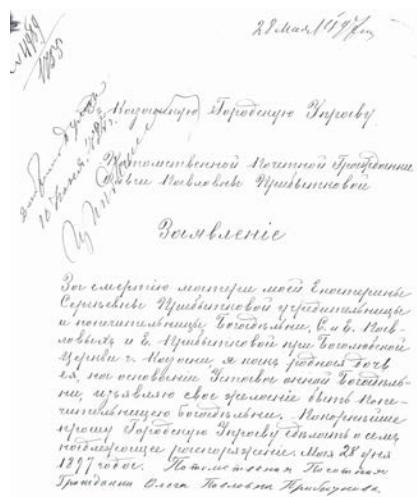 28 Мая 1897 г.
№ 4989
Въ Казанскую Городскую Управу
Потомственной Почетной Гражданки
Ольги Павловны Прибытковой
Заявленіе
За смертію матери моей Екатерины
Сергѣевны Прибытковой учредительницы
и попечительницы Богадѣльни, С. и Е. Пав-
ловыхъ и Е. Прибытковой при Богоявленской
Церкви г. Казани, я какъ родная дочь
ея, на основаніи Устава оной Богадѣль-
ни, изъявляю свое желаніе быть попе-
чительницею богадѣльни. Покорнѣйше
прошу Городскую Управу сдѣлать о семъ
надлежащее распоряженіе. Мая 28 дня
1897 года. Потомственная Почетная
Гражданка Ольга Павловна Прибыткова.